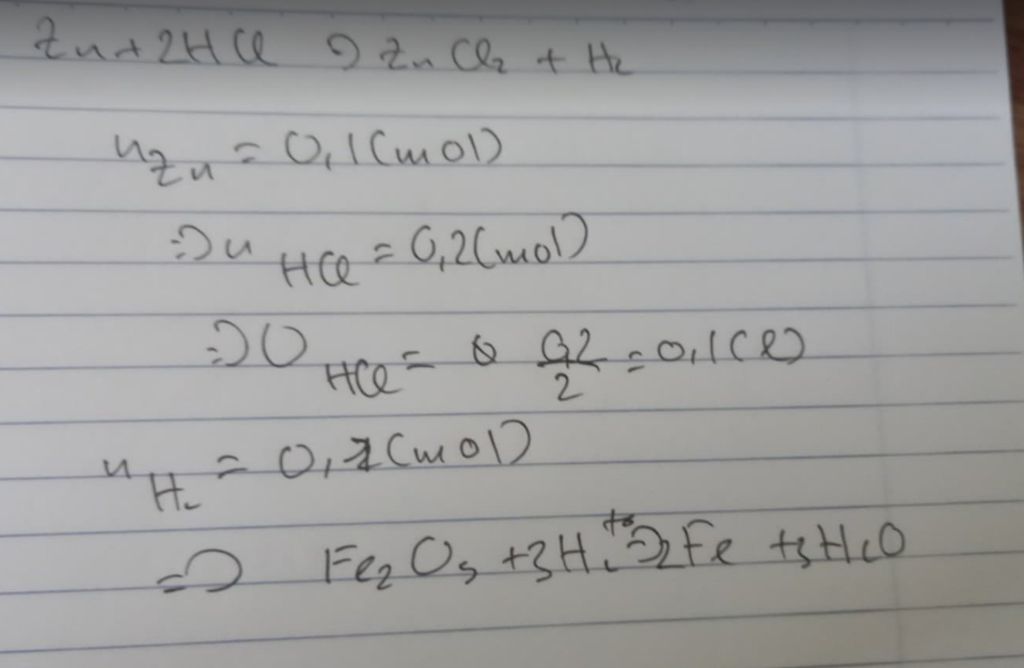 Zn + 2HCl → ZnCl₂ + H₂
n Zn = 0,1 (mol)
=> n HCl = 0,2 (mol)
=> V HCl = 0,2/2 = 0,1 (l)
n H₂ = 0,1 (mol)
=> Fe₂O₃ + 3H₂ t° → 2Fe + 3H₂O